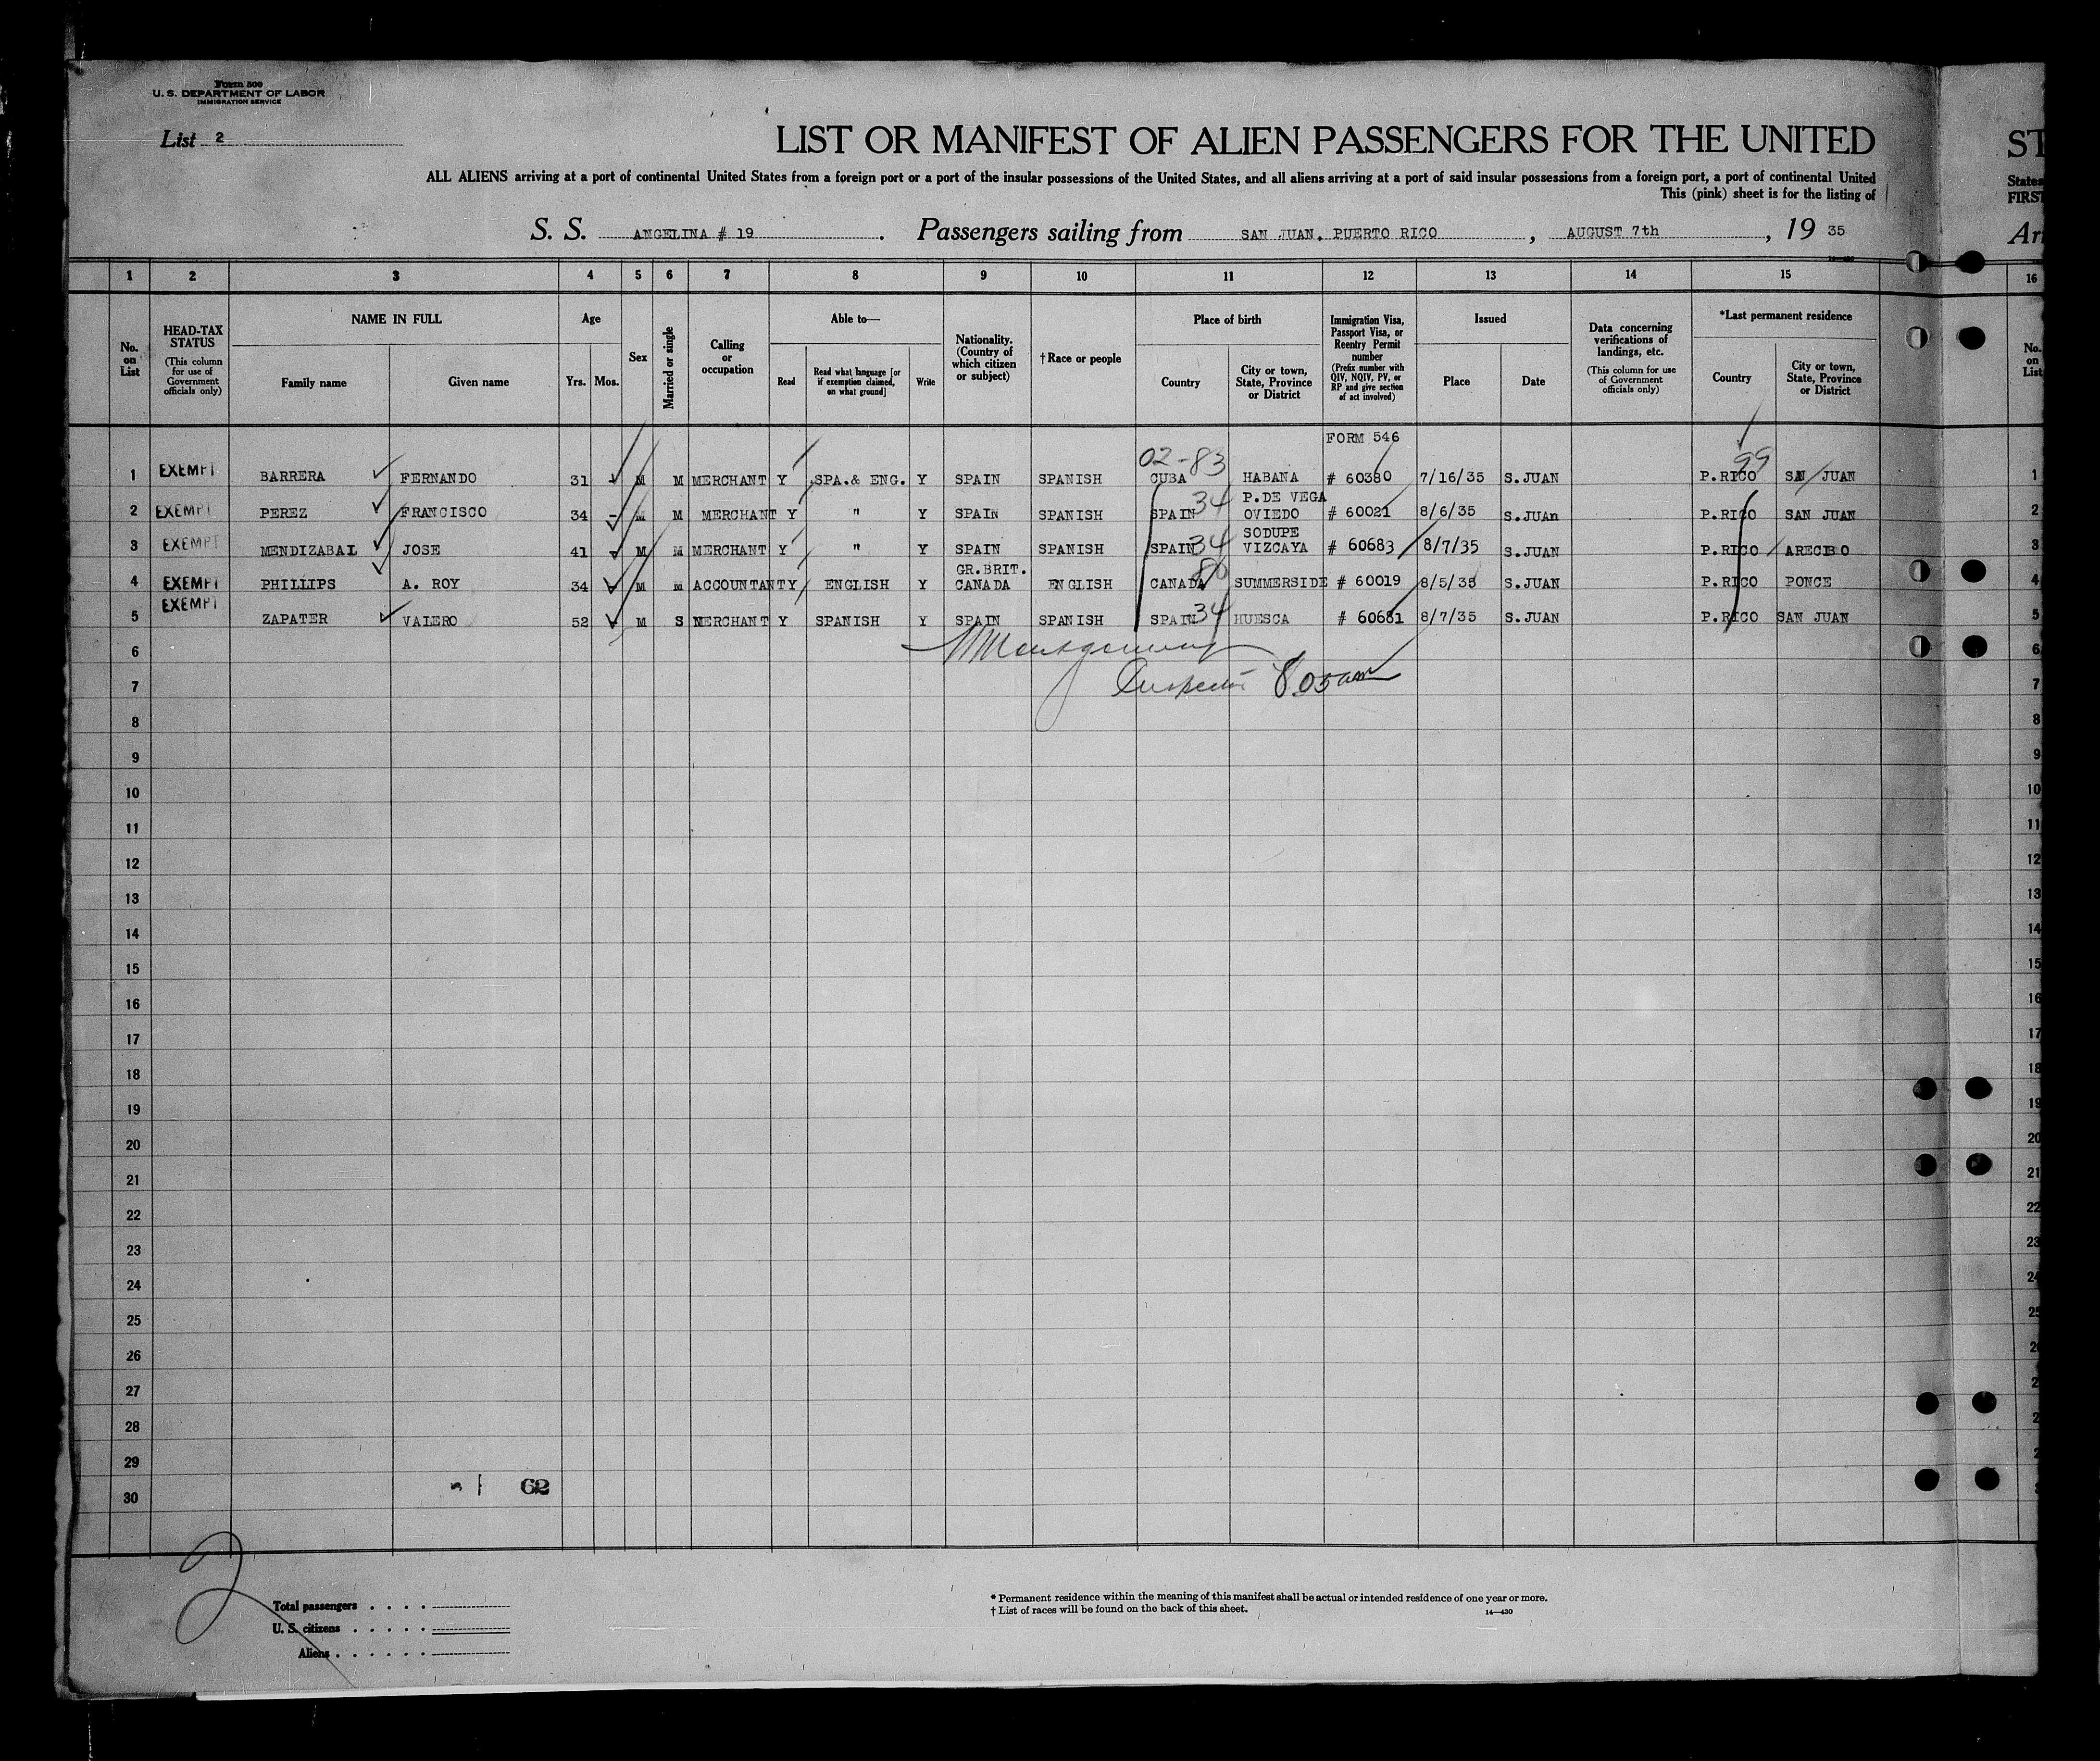 Form 500
U. S. DEPARTMENT OF LABOR
IMMIGRATION SERVICE
List 2
LIST OR MANIFEST OF ALIEN PASSENGERS FOR THE UNITED
ST
ALL ALIENS arriving at a port of continental United States from a foreign port or a port of the insular possessions of the United States, and all aliens arriving at a port of said insular possessions from a foreign port, a port of continental United
States
This (pink) sheet is for the listing of
FIRST
S. S. ANGELINA # 19. Passengers sailing from SAN JUAN, PUERTO RICO, AUGUST 7th, 19 35
Arr
1 2 3 4 5 6 7 8 9 10 11 12 13 14 15 16
No. on List
HEAD-TAX STATUS (This column for use of Government officials only)
NAME IN FULL
Family name Given name
Age
Yrs. Mos.
Sex
Married or single
Calling or occupation
Able to—
Read Read what language [or if exemption claimed, on what ground] Write
Nationality. (Country of which citizen or subject)
†Race or people
Place of birth
Country City or town, State, Province or District
Immigration Visa, Passport Visa, or Reentry Permit number (Prefix number with QIV, NQIV, PV, or RP and give section of act involved)
Issued
Place Date
Data concerning verifications of landings, etc. (This column for use of Government officials only)
*Last permanent residence
Country City or town, State, Province or District
No. on List
FORM 546
02-83 99
1 EXEMPT BARRERA FERNANDO 31 M M MERCHANT Y SPA.& ENG. Y SPAIN SPANISH CUBA HABANA # 60380 7/16/35 S.JUAN P.RICO SAN JUAN 1
34 P.DE VEGA
2 EXEMPT PEREZ FRANCISCO 34 - M M MERCHANT Y " Y SPAIN SPANISH SPAIN OVIEDO # 60021 8/6/35 S.JUAn P.RICO SAN JUAN 2
34 SODUPE
3 EXEMPT MENDIZABAL JOSE 41 - M M MERCHANT Y " Y SPAIN SPANISH SPAIN VIZCAYA # 60683 8/7/35 S.JUAN P.RICO ARECIBO 3
GR.BRIT. 80
4 EXEMPT PHILLIPS A. ROY 34 M M ACCOUNTANT Y ENGLISH Y CANADA ENGLISH CANADA SUMMERSIDE # 60019 8/5/35 S.JUAN P.RICO PONCE 4
5 EXEMPT ZAPATER VALERO 52 M S MERCHANT Y SPANISH Y SPAIN SPANISH SPAIN 34 HUESCA # 60681 8/7/35 S.JUAN P.RICO SAN JUAN 5
6 Montgomery 6
7 Inspector 8.05 am 7
8 8
9 9
10 10
11 11
12 12
13 13
14 14
15 15
16 16
17 17
18 18
19 19
20 20
21 21
22 22
23 23
24 24
25 25
26 2
27 2
28 2
29 2
62
30
2
Total passengers . . . .
U. S. citizens . . . . .
Aliens . . . . . .
* Permanent residence within the meaning of this manifest shall be actual or intended residence of one year or more.
† List of races will be found on the back of this sheet.
14—430